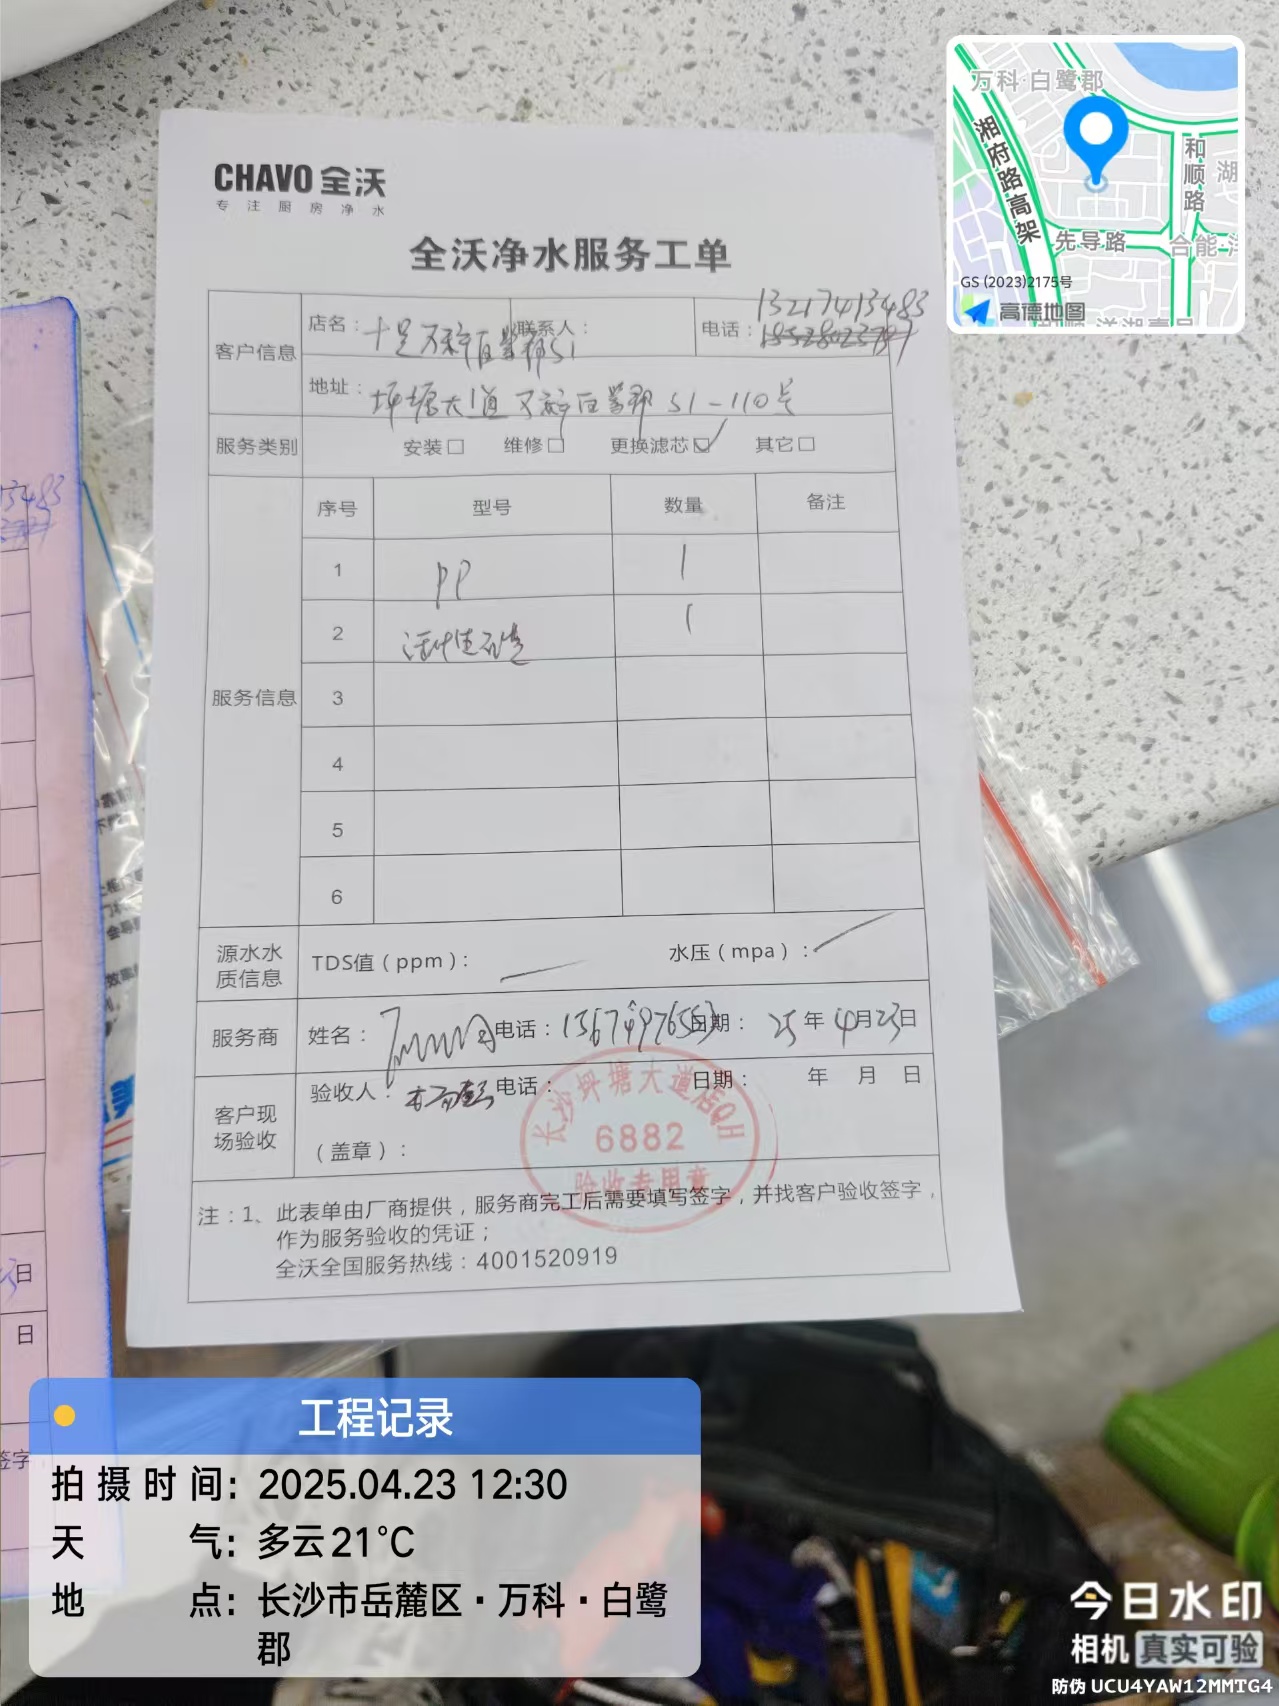 万科·白鹭郡
湘府路高架
和顺路
湖
先导路
合能·洋
GS (2023)2175号
高德地图
CHAVO 全沃
专注厨房净水
全沃净水服务工单
客户信息
店名：十足万科白鹭郡S1
联系人：
电话：13217413483
地址：坪塘大道万科白鹭郡 S1-110号
服务类别 安装□ 维修□ 更换滤芯☑ 其它□
服务信息
序号 型号 数量 备注
1 PP 1
2 活性炭 1
3
4
5
6
源水水质信息 TDS值（ppm）： 水压（mpa）：
服务商 姓名： 电话： 日期：25年4月23日
客户现场验收 验收人： 电话： 日期： 年 月 日
（盖章）：
长沙坪塘大道店QH
6882
验收专用章
注：1、此表单由厂商提供，服务商完工后需要填写签字，并找客户验收签字，
作为服务验收的凭证；
全沃全国服务热线：4001520919
日
日
签字
工程记录
拍摄时间：2025.04.23 12:30
天气：多云21℃
地点：长沙市岳麓区·万科·白鹭
郡
今日水印
相机 真实可验
防伪 UCU4YAW12MMTG4